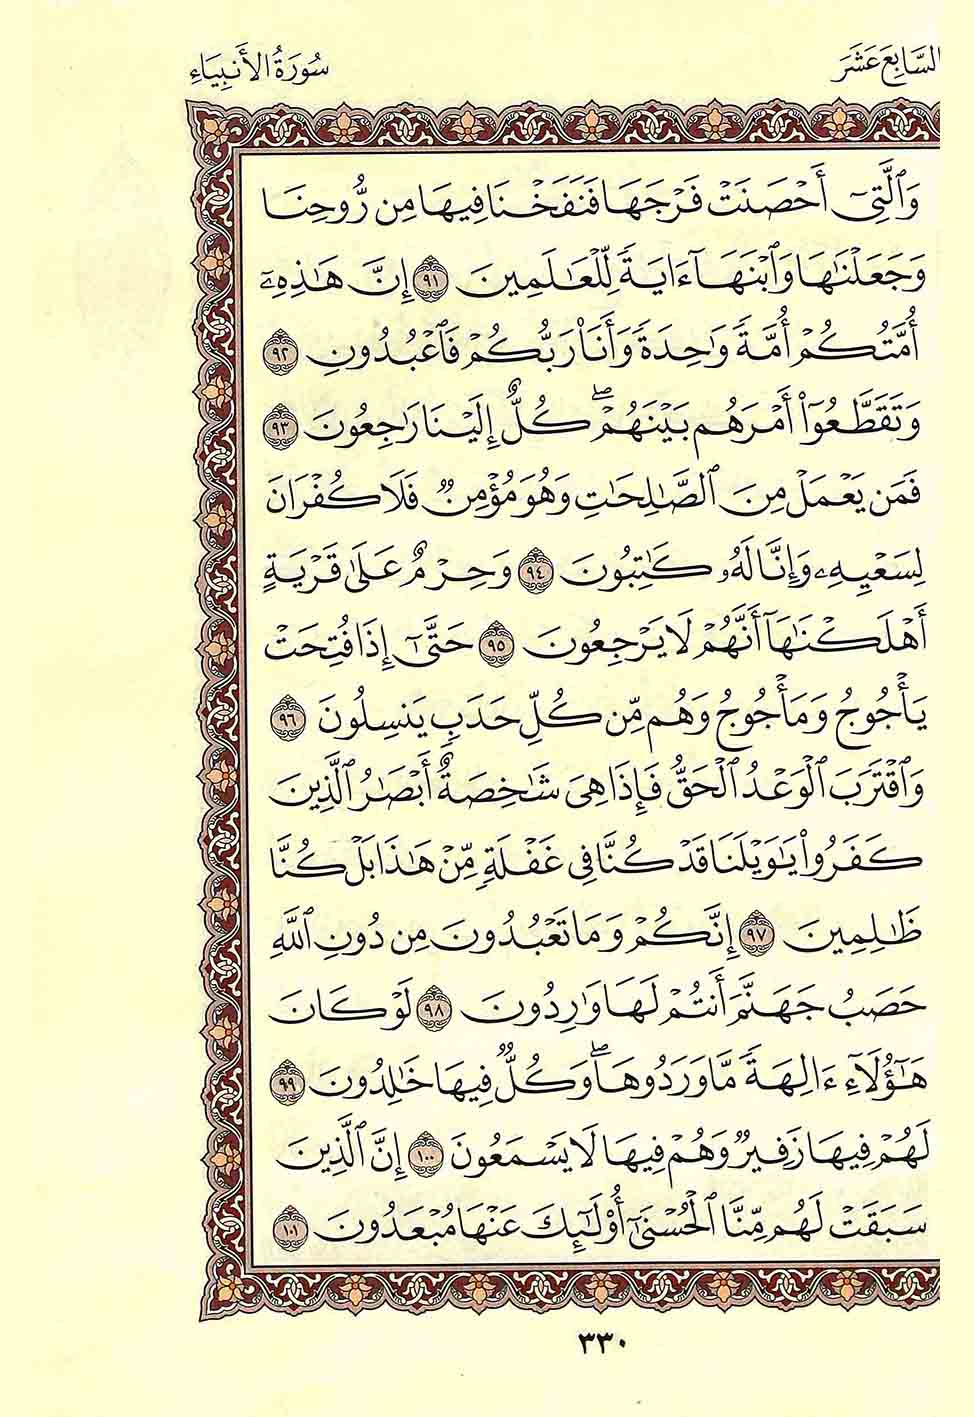 السَّابِعَ عَشَرَ
سُورَةُ الأَنبِيَاءِ
وَٱلَّتِىٓ أَحْصَنَتْ فَرْجَهَا فَنَفَخْنَا فِيهَا مِن رُّوحِنَا
وَجَعَلْنَٰهَا وَٱبْنَهَآ ءَايَةً لِّلْعَٰلَمِينَ ٩١ إِنَّ هَٰذِهِۦٓ
أُمَّتُكُمْ أُمَّةً وَٰحِدَةً وَأَنَا۠ رَبُّكُمْ فَٱعْبُدُونِ ٩٢
وَتَقَطَّعُوٓا۟ أَمْرَهُم بَيْنَهُمْۖ كُلٌّ إِلَيْنَا رَٰجِعُونَ ٩٣
فَمَن يَعْمَلْ مِنَ ٱلصَّٰلِحَٰتِ وَهُوَ مُؤْمِنٌ فَلَا كُفْرَانَ
لِسَعْيِهِۦ وَإِنَّا لَهُۥ كَٰتِبُونَ ٩٤ وَحِرْمٌ عَلَىٰ قَرْيَةٍ
أَهْلَكْنَٰهَآ أَنَّهُمْ لَا يَرْجِعُونَ ٩٥ حَتَّىٰٓ إِذَا فُتِحَتْ
يَأْجُوجُ وَمَأْجُوجُ وَهُم مِّن كُلِّ حَدَبٍ يَنسِلُونَ ٩٦
وَٱقْتَرَبَ ٱلْوَعْدُ ٱلْحَقُّ فَإِذَا هِىَ شَٰخِصَةٌ أَبْصَٰرُ ٱلَّذِينَ
كَفَرُوا۟ يَٰوَيْلَنَا قَدْ كُنَّا فِى غَفْلَةٍ مِّنْ هَٰذَا بَلْ كُنَّا
ظَٰلِمِينَ ٩٧ إِنَّكُمْ وَمَا تَعْبُدُونَ مِن دُونِ ٱللَّهِ
حَصَبُ جَهَنَّمَ أَنتُمْ لَهَا وَٰرِدُونَ ٩٨ لَوْ كَانَ
هَٰٓؤُلَآءِ ءَالِهَةً مَّا وَرَدُوهَاۖ وَكُلٌّ فِيهَا خَٰلِدُونَ ٩٩
لَهُمْ فِيهَا زَفِيرٌ وَهُمْ فِيهَا لَا يَسْمَعُونَ ١٠٠ إِنَّ ٱلَّذِينَ
سَبَقَتْ لَهُم مِّنَّا ٱلْحُسْنَىٰٓ أُو۟لَٰٓئِكَ عَنْهَا مُبْعَدُونَ ١٠١
٣٣٠